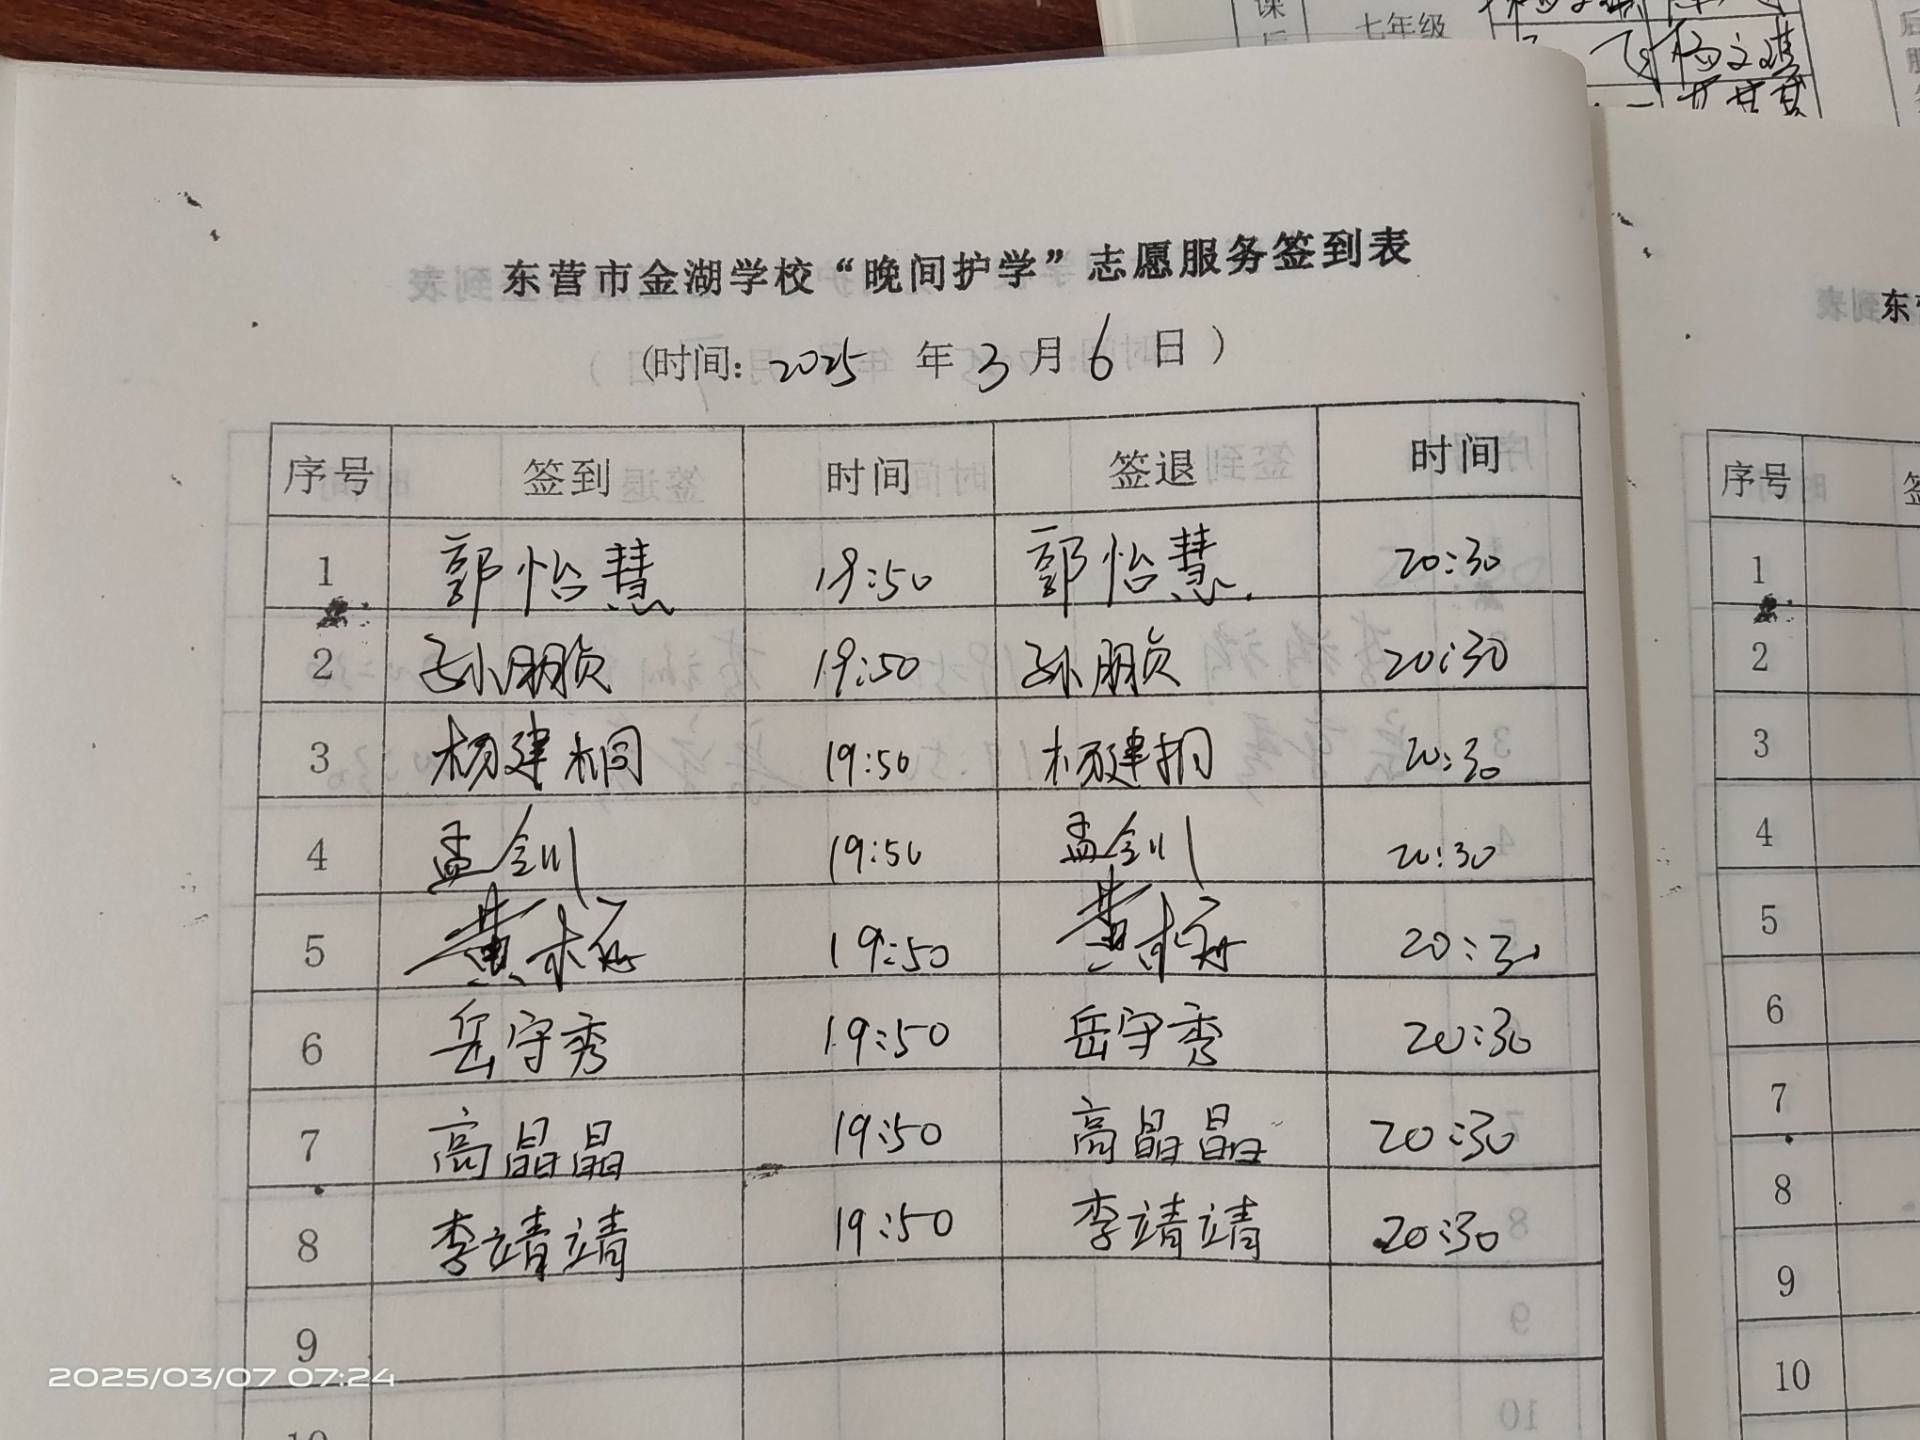 课
后
七年级
杨文婧
东营市金湖学校“晚间护学”志愿服务签到表
(时间: 2025 年 3 月 6 日 )
序号 签到 时间 签退 时间
1 郭怡慧 19:50 郭怡慧 20:30
2 孙鹏贞 19:50 孙鹏贞 20:30
3 杨建桐 19:50 杨建桐 20:30
4 孟剑 19:50 孟剑 20:30
5 黄 19:50 黄 20:30
6 岳守秀 19:50 岳守秀 20:30
7 高晶晶 19:50 高晶晶 20:30
8 李靖靖 19:50 李靖靖 20:30
9
10
东
序号
1
2
3
4
5
6
7
8
9
10
2025/03/07 07:24